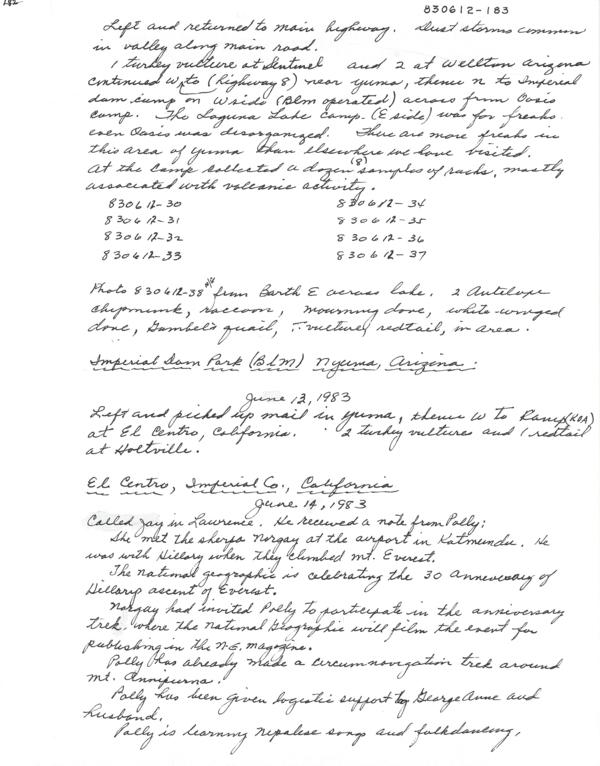 182
830612-183
Left and returned to main highway. Dust storms common
in valley along main road.
1 turkey vulture at Sentinel and 2 at Wellton Arizona
continued W, to (highway 8) near Yuma, thence N to Imperial
dam camp on W side (Blm operated) across from Oasis
camp. The Laguna Lake camp. (E side) was for freaks.
even Oasis was disorganized. There are more freaks in
this area of Yuma than elsewhere we have visited.
At the camp collected a dozen (8) samples of rocks, mostly
associated with volcanic activity.
830612-30 830612-34
830612-31 830612-35
830612-32 830612-36
830612-33 830612-37
Photo 830612-38 from Barth E across lake. 2 Antelope
chipmunk, raccoon, mourning dove, white-winged
dove, Gambel's quail, vulture, redtail, in area.
Imperial Dam Park (Blm) N Yuma, Arizona.
June 13, 1983
Left and picked up mail in Yuma, thence W to Ramp (KOA)
at El Centro, California. 2 turkey vultures and 1 redtail
at Holtville.
El Centro, Imperial Co., California
June 14, 1983
Called Jay in Lawrence. He received a note from Polly:
She met the sherpa Norgay at the airport in Katmandu. He
was with Hillary when they climbed Mt. Everest.
The National geographic is celebrating the 30 anneversary of
Hillary ascent of Everest.
Norgay had invited Polly to participate in the anniversary
trek, where the National Geographic will film the event for
publishing in the N.G. magazine.
Polly has already made a circumnavigation trek around
Mt. Annipurna.
Polly has been given logistic support by George Anne and
husband.
Polly is learning nepalese songs and folkdancing,